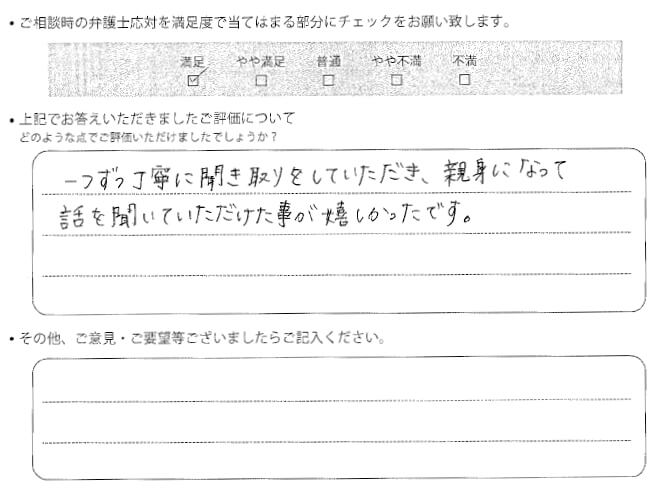 • ご相談時の弁護士応対を満足度で当てはまる部分にチェックをお願い致します。
満足 やや満足 普通 やや不満 不満
• 上記でお答えいただきましたご評価について
どのような点でご評価いただけましたでしょうか?
一つずつ丁寧に聞き取りをしていただき、親身になって
話を聞いていただけた事が嬉しかったです。
• その他、ご意見・ご要望等ございましたらご記入ください。